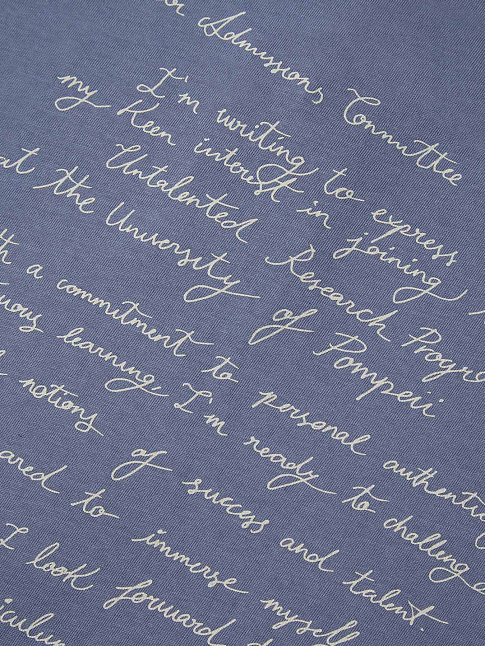 or Admissions Committee
I'm writing to express
my Keen interest in joining,
Untalented Research Progre
at the University of Pompeii
th a commitment to personal authentic
uous learning, I'm ready to challenge
notions of success and talent.
ared to immerse myself
I look forward
iculum